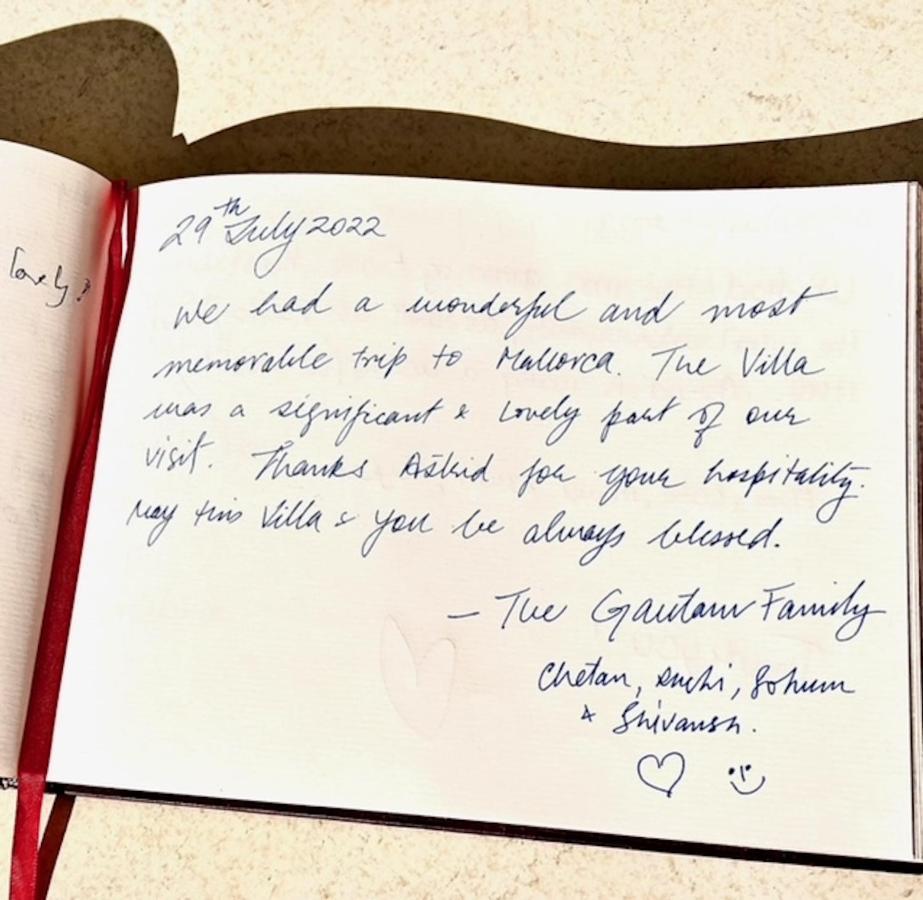 lovely?
29th July 2022
We had a wonderful and most
memorable trip to Mallorca. The Villa
was a significant & lovely part of our
visit. Thanks Astrid for your hospitality.
May this Villa & you be always blessed.
- The Gautam Family
Chetan, Ruchi, Sohum
& Shivansh.